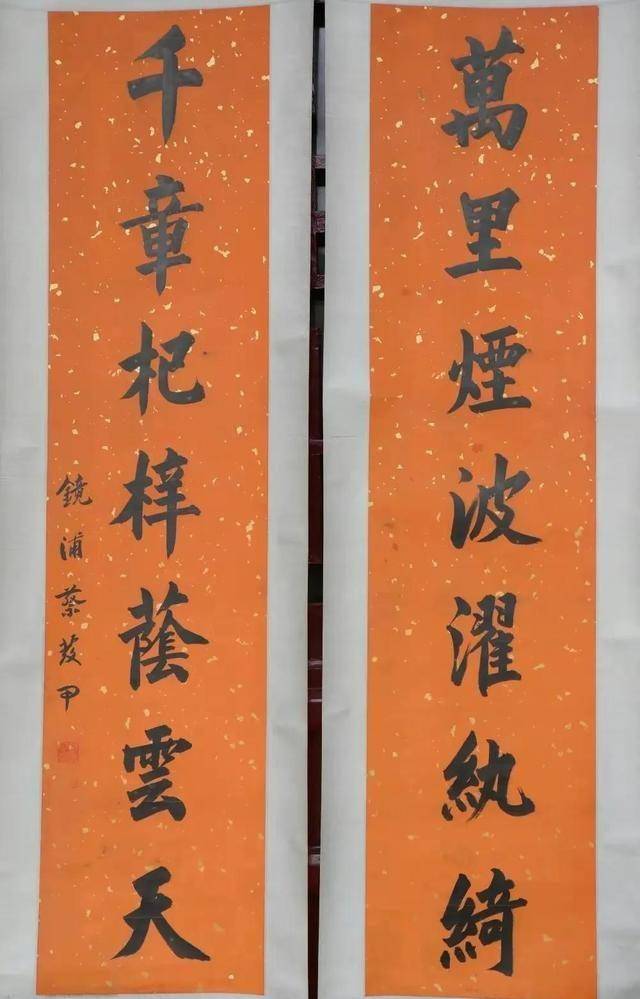 萬里煙波濯紈綺
千章杞梓蔭雲天
鏡浦蔡芨甲